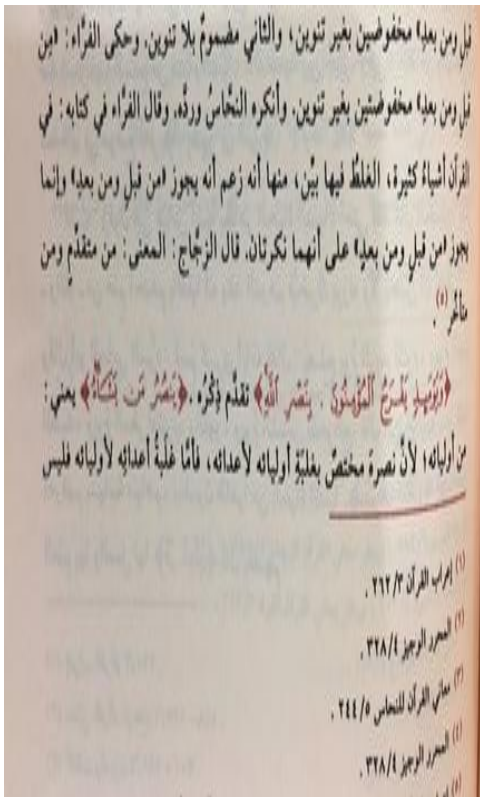 قبلِ ومن بعدِ» مخفوضين بغير تنوين، والثاني مضمومٌ بلا تنوين. وحكى الفرَّاء: «مِن
قبلِ ومن بعدِ» مخفوضتين بغير تنوين، وأنكره النحَّاسُ وردَّه. وقال الفرَّاء في كتابه: في
القرآن أشياءُ كثيرة، الغلطُ فيها بيِّن، منها أنه زعم أنه يجوز «من قبلِ ومن بعدِ» وإنما
يجوز «من قبلٍ ومن بعدٍ» على أنهما نكرتان. قال الزجَّاج: المعنى: من متقدِّمٍ ومن
متأخِّر(٥).
﴿وَيَوْمَئِذٍ يَفْرَحُ الْمُؤْمِنُونَ . بِنَصْرِ اللَّهِ﴾ تقدَّم ذِكْرُه. ﴿يَنصُرُ مَن يَشَاءُ﴾ يعني:
من أوليائه؛ لأنَّ نصرَه مختصٌّ بغلبةِ أوليائه لأعدائه، فأمَّا غلَبةُ أعدائِه لأوليائه فليس
(١) إعراب القرآن ٢٦٢/٣ .
(٢) المحرر الوجيز ٣٢٨/٤ .
(٣) معاني القرآن للنحاس ٢٤٤/٥ .
(٤) المحرر الوجيز ٣٢٨/٤ .
(٥)